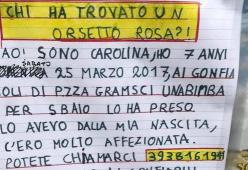 CHI HA TROVATO UN
ORSETTO ROSA?!
AO! SONO CAROLINA, HO 7 ANNI
SABATO
25 MARZO 2017, AI GONFIA
OLI DI P.ZZA GRAMSCI UNA BIMBA
PER SBAIO LO HA PRESO.
LO AVEVO DALLA MIA NASCITA,
C'ERO MOLTO AFFEZIONATA.
POTETE CHIAMARCI